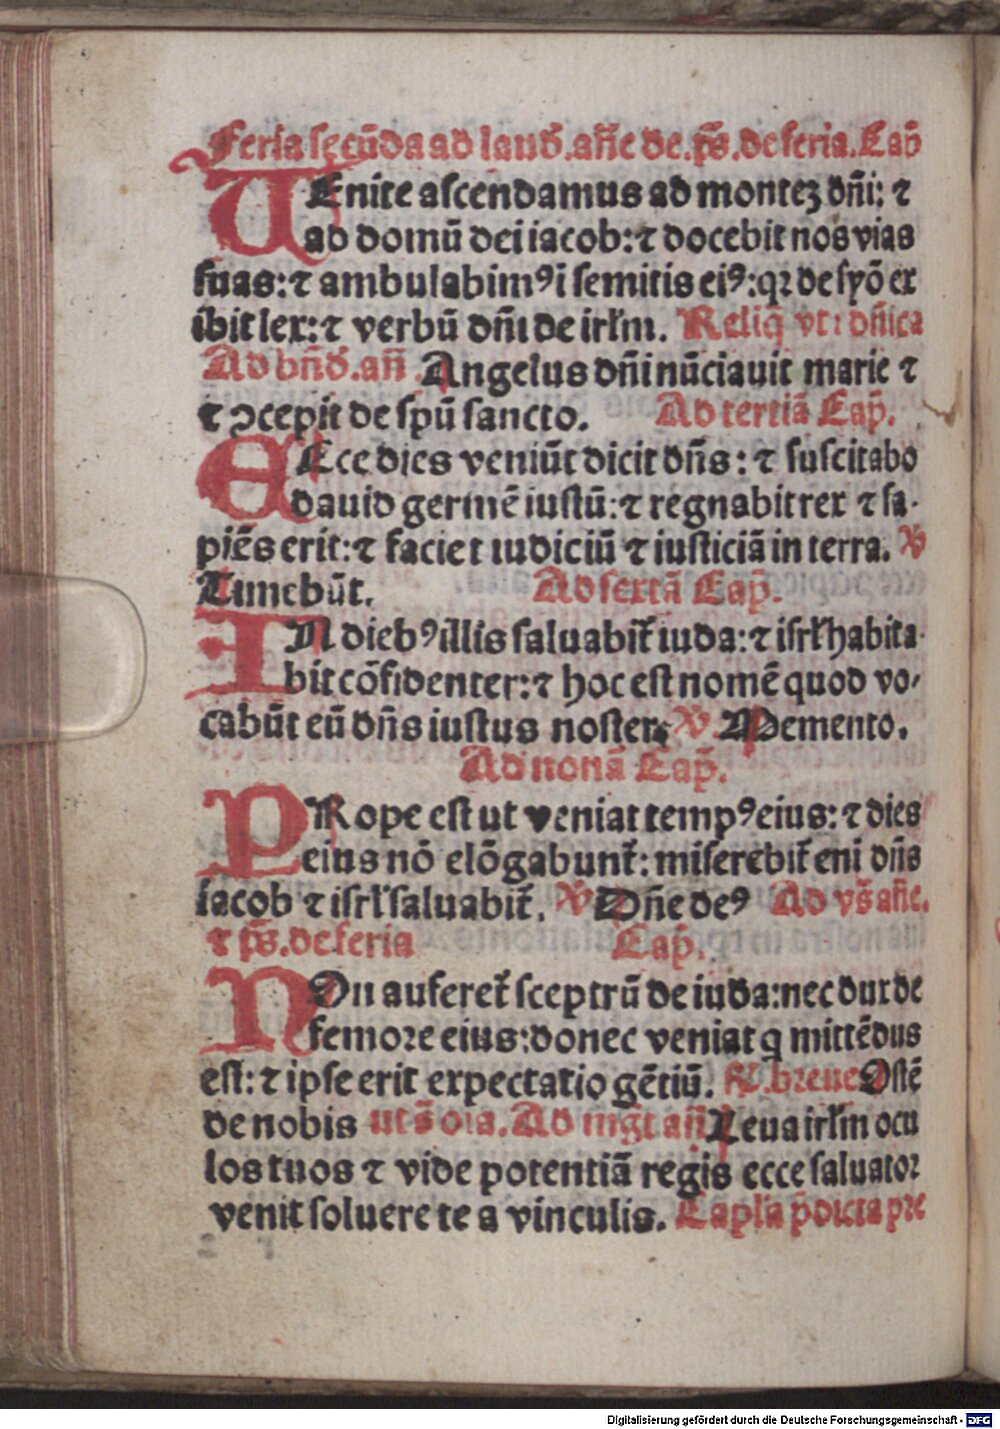 Feria secūda ad laud̄. an̄e de. ps̄. de feria. Cap̄
VEnite ascendamus ad montez dn̄i: ⁊
ad domū dei iacob: ⁊ docebit nos vias
suas: ⁊ ambulabimꝰ ī semitis eiꝰ: qꝛ de syō ex
ibit lex: ⁊ verbū dn̄i de irl̄m. Reliq̄ vt ī dn̄ica
Ad bn̄d̄. an̄ Angelus dn̄i nūciauit marie ⁊
⁊ ꝯcepit de spū sancto. Ad tertiā Cap̄.
ECce dies veniūt dicit dn̄s: ⁊ suscitabo
dauid germē iustū: ⁊ regnabit rex ⁊ sa-
piēs erit: ⁊ faciet iudiciū ⁊ iusticiā in terra. ℣
Timebūt. Ad sextā Cap̄.
IN diebꝰ illis saluabit̄ iuda: ⁊ isrl̄ habita-
bit cōfidenter: ⁊ hoc est nomē quod vo-
cabūt eū dn̄s iustus noster. ℣ Memento.
Ad nonā Cap̄.
PRope est ut veniat tempꝰ eius: ⁊ dies
eius nō elōgabunt̄: miserebit̄ eni dn̄s
iacob ⁊ isrl̄ saluabit̄. ℣ Dn̄e deꝰ Ad vs̄ an̄e.
⁊ ps̄. de feria Cap̄.
NOn auferet̄ sceptrū de iuda: nec dux de
femore eius: donec veniat q̄ mittēdus
est: ⁊ ipse erit expectatio gētiū. ℟. breue Ostē
de nobis ut s̄ dīa. Ad mḡt an̄ Leua irl̄m ocu
los tuos ⁊ vide potentiā regis ecce saluator
venit soluere te a vinculis. Capl̄a p̄dicta pre
Digitalisierung gefördert durch die Deutsche Forschungsgemeinschaft - DFG